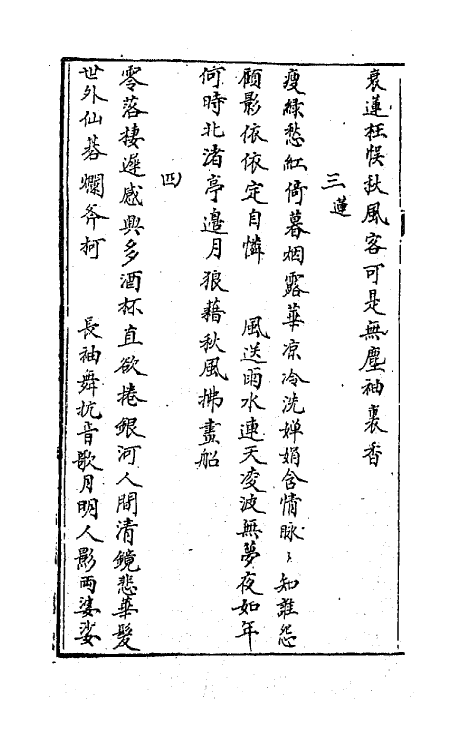 衰蓮枉悮秋風客可是無塵袖裏香
三蓮
瘦綠愁紅倚暮烟露華凉冷洗嬋娟含情脉〻知誰怨
顧影依依定自憐　風送雨水連天凌波無夢夜如年
何時北渚亭邊月狼藉秋風拂畫船
四
零落棲遲感興多酒杯直欲捲銀河人間清鏡悲華髮
世外仙棊爛斧柯　長袖舞抗音歌月明人影兩婆娑